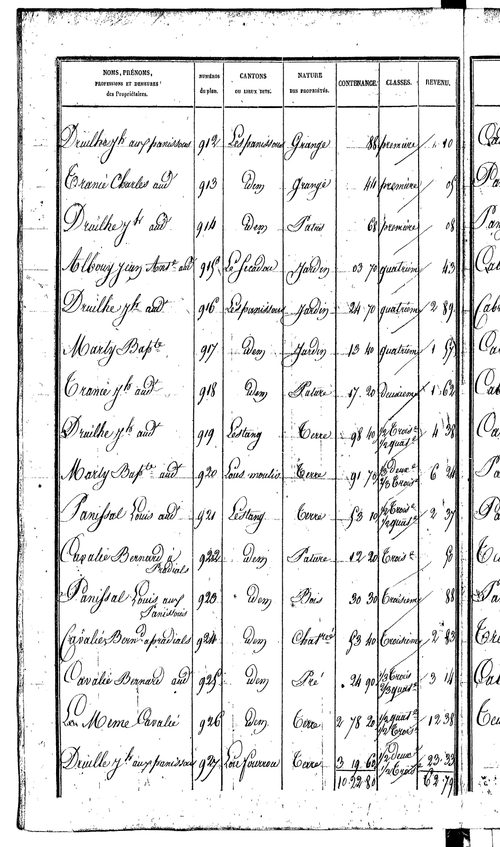 NOMS, PRÉNOMS, PROFESSIONS ET DEMEURES des Propriétaires. NUMÉROS du plan. CANTONS OU LIEUX DITS. NATURE DES PROPRIÉTÉS. CONTENANCE. CLASSES. REVENU.
Druilhe aux panissous 912 Les panissous Grange 88 première 10
Tranié Charles aud 913 idem Grange 44 première 05
Druilhe aud 914 idem Patus 68 première 08
Albouy Jean aud 915 Jardin 03 70 quatrième 43
Druilhe aud 916 Les panissous Jardin 24 70 quatrième 2 89
Marty Bapte 917 idem Jardin 13 40 quatrième 1 57
Tranié aud 918 idem Pature 17 20 Deuxieme 1 62
Druilhe aud 919 Lestang Terre 98 40 1/2 Trois 1/2 quat 4 38
Marty Bapte aud 920 Lous moulis Terre 91 70 1/3 Deux 2/3 Trois 6 24
Panissal Louis aud 921 Lestang Terre 53 10 1/2 Trois 1/2 quat 2 37
Cavalié Bernard a Pradials 922 idem Pature 12 20 Trois 50
Panissal Louis aux Panissous 923 idem Bois 30 30 Troisieme 88
Cavalié Bernd a pradials 924 idem 53 40 Troisieme 2 83
Cavalié Bernard aud 925 idem Pré 24 90 1/3 Trois 2/3 quat 3 14
Le Meme Cavalié 926 idem Terre 2 78 20 1/2 quat 1/2 Trois 12 38
Druille aux panissous 927 Lou fourrou Terre 3 19 60 1/2 Deux 1/2 Trois 23 33
10 22 80 62 79